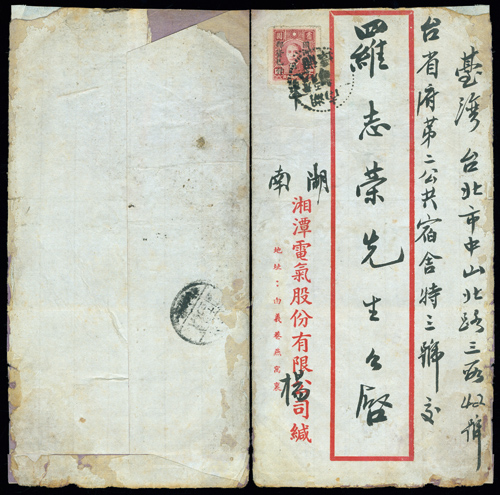 臺灣 台北市中山北路三段
台省府第二公共宿舍特三號交
羅志榮先生台啓
湖南
湘潭電氣股份有限公司緘
楊
地址：由義巷燕窩裏